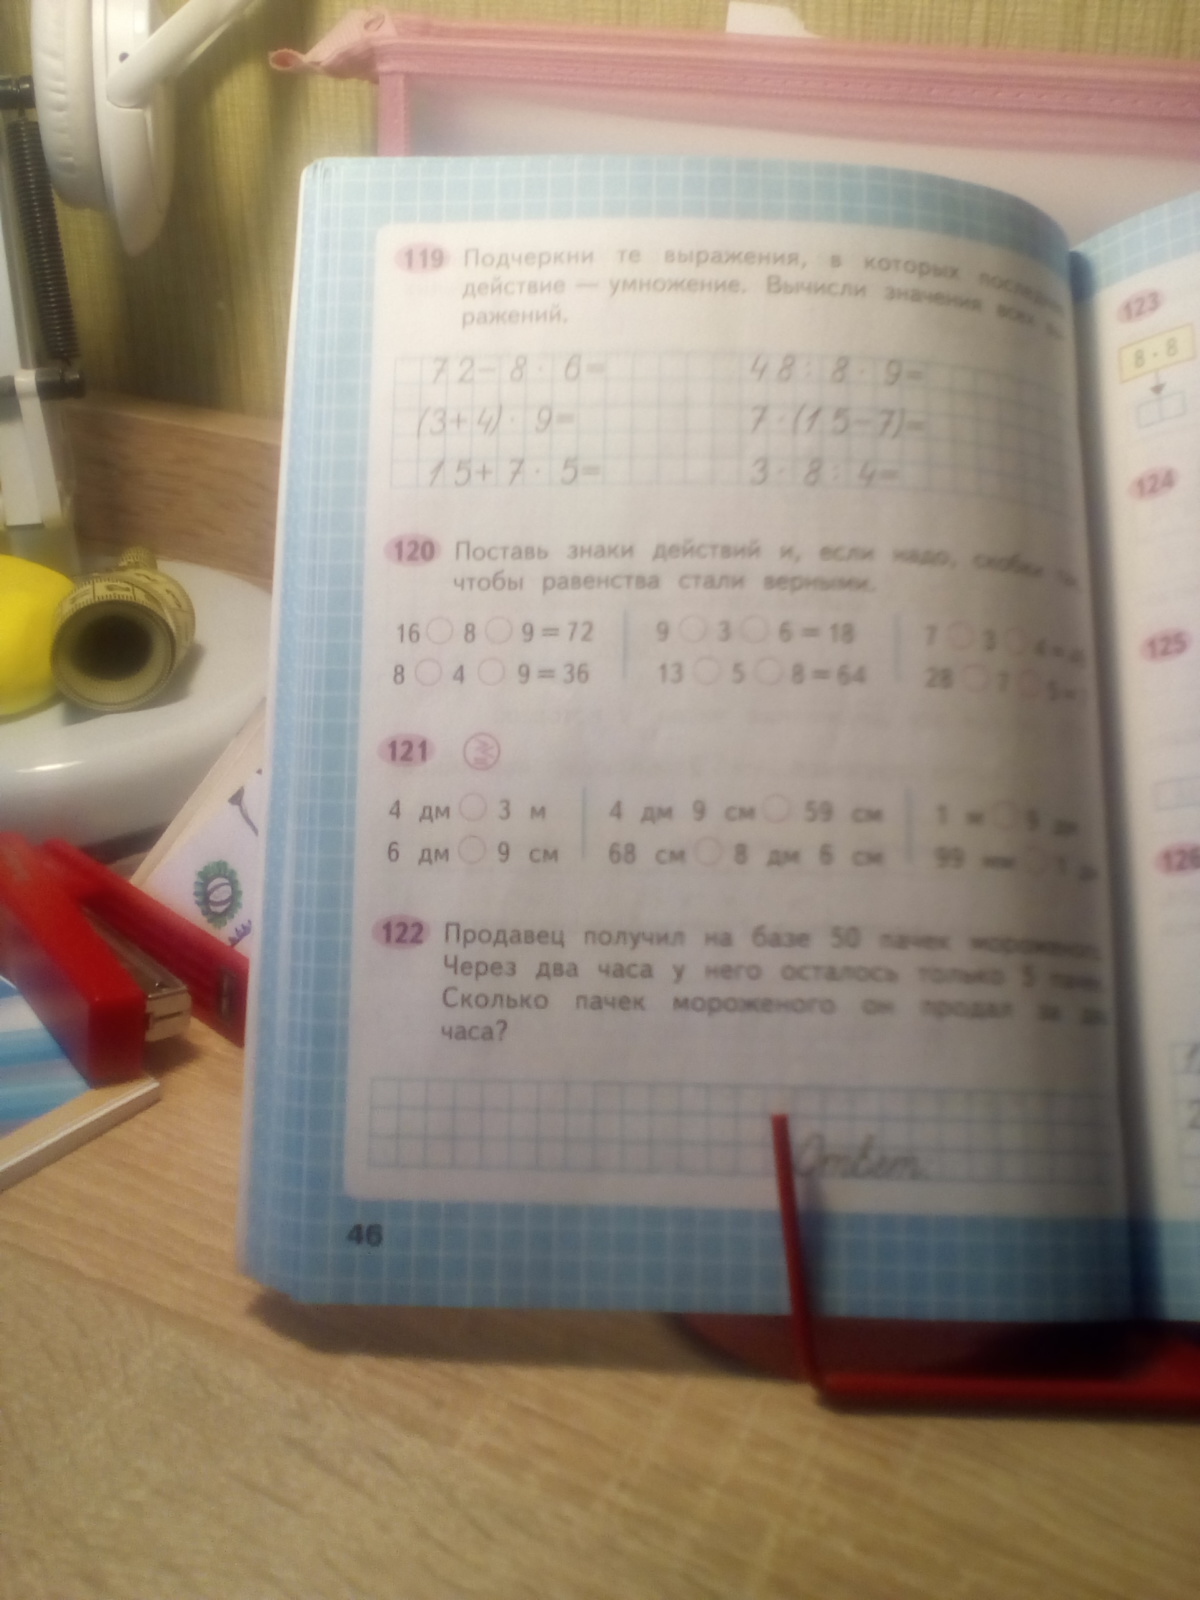 119 Подчеркни те выражения, в которых
действие — умножение. Вычисли значения всех
ражений.
72-8·6= 48:8·9=
(3+4)·9= 7·(15-7)=
15+7·5= 3·8:4=
120 Поставь знаки действий и, если надо, скобки
чтобы равенства стали верными.
16 8 9=72 9 3 6=18 7 3
8 4 9=36 13 5 8=64 28 7
121
4 дм 3 м 4 дм 9 см 59 см 1 м 9 дм
6 дм 9 см 68 см 8 дм 6 см 99 мм 1
122 Продавец получил на базе 50 пачек мороженого.
Через два часа у него осталось только 5
Сколько пачек мороженого он продал за
часа?
Ответ:
46
123
8·8
124
125
126